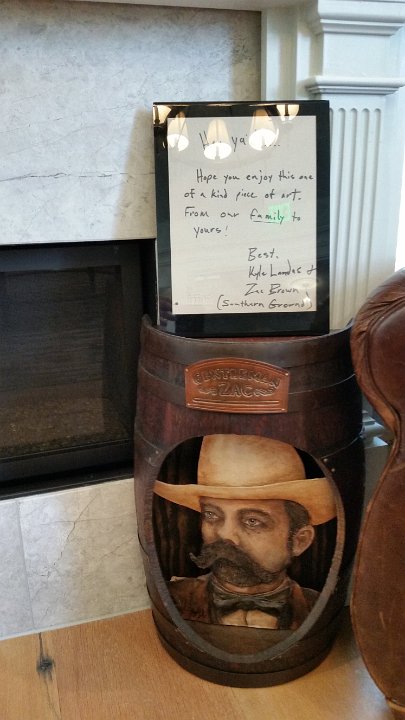 Hope you enjoy this one
of a kind piece of art.
From our family to
yours!
Best,
Kyle Landas &
Zac Brown
(Southern Ground)
GENTLEMAN
ZAC